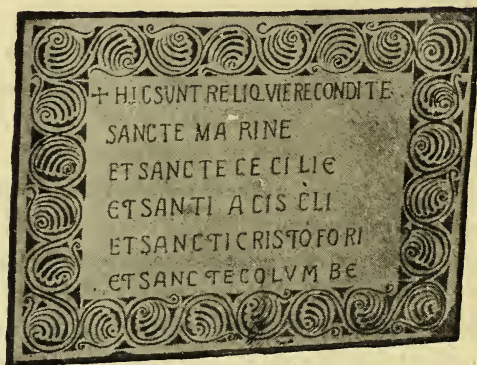 + HIC SUNT RELIQVIE RECONDITE
SANCTE MARINE
ET SANCTE CECILIE
ET SANTI ACISCLI
ET SANCTI CRISTOFORI
ET SANCTE COLVMBE